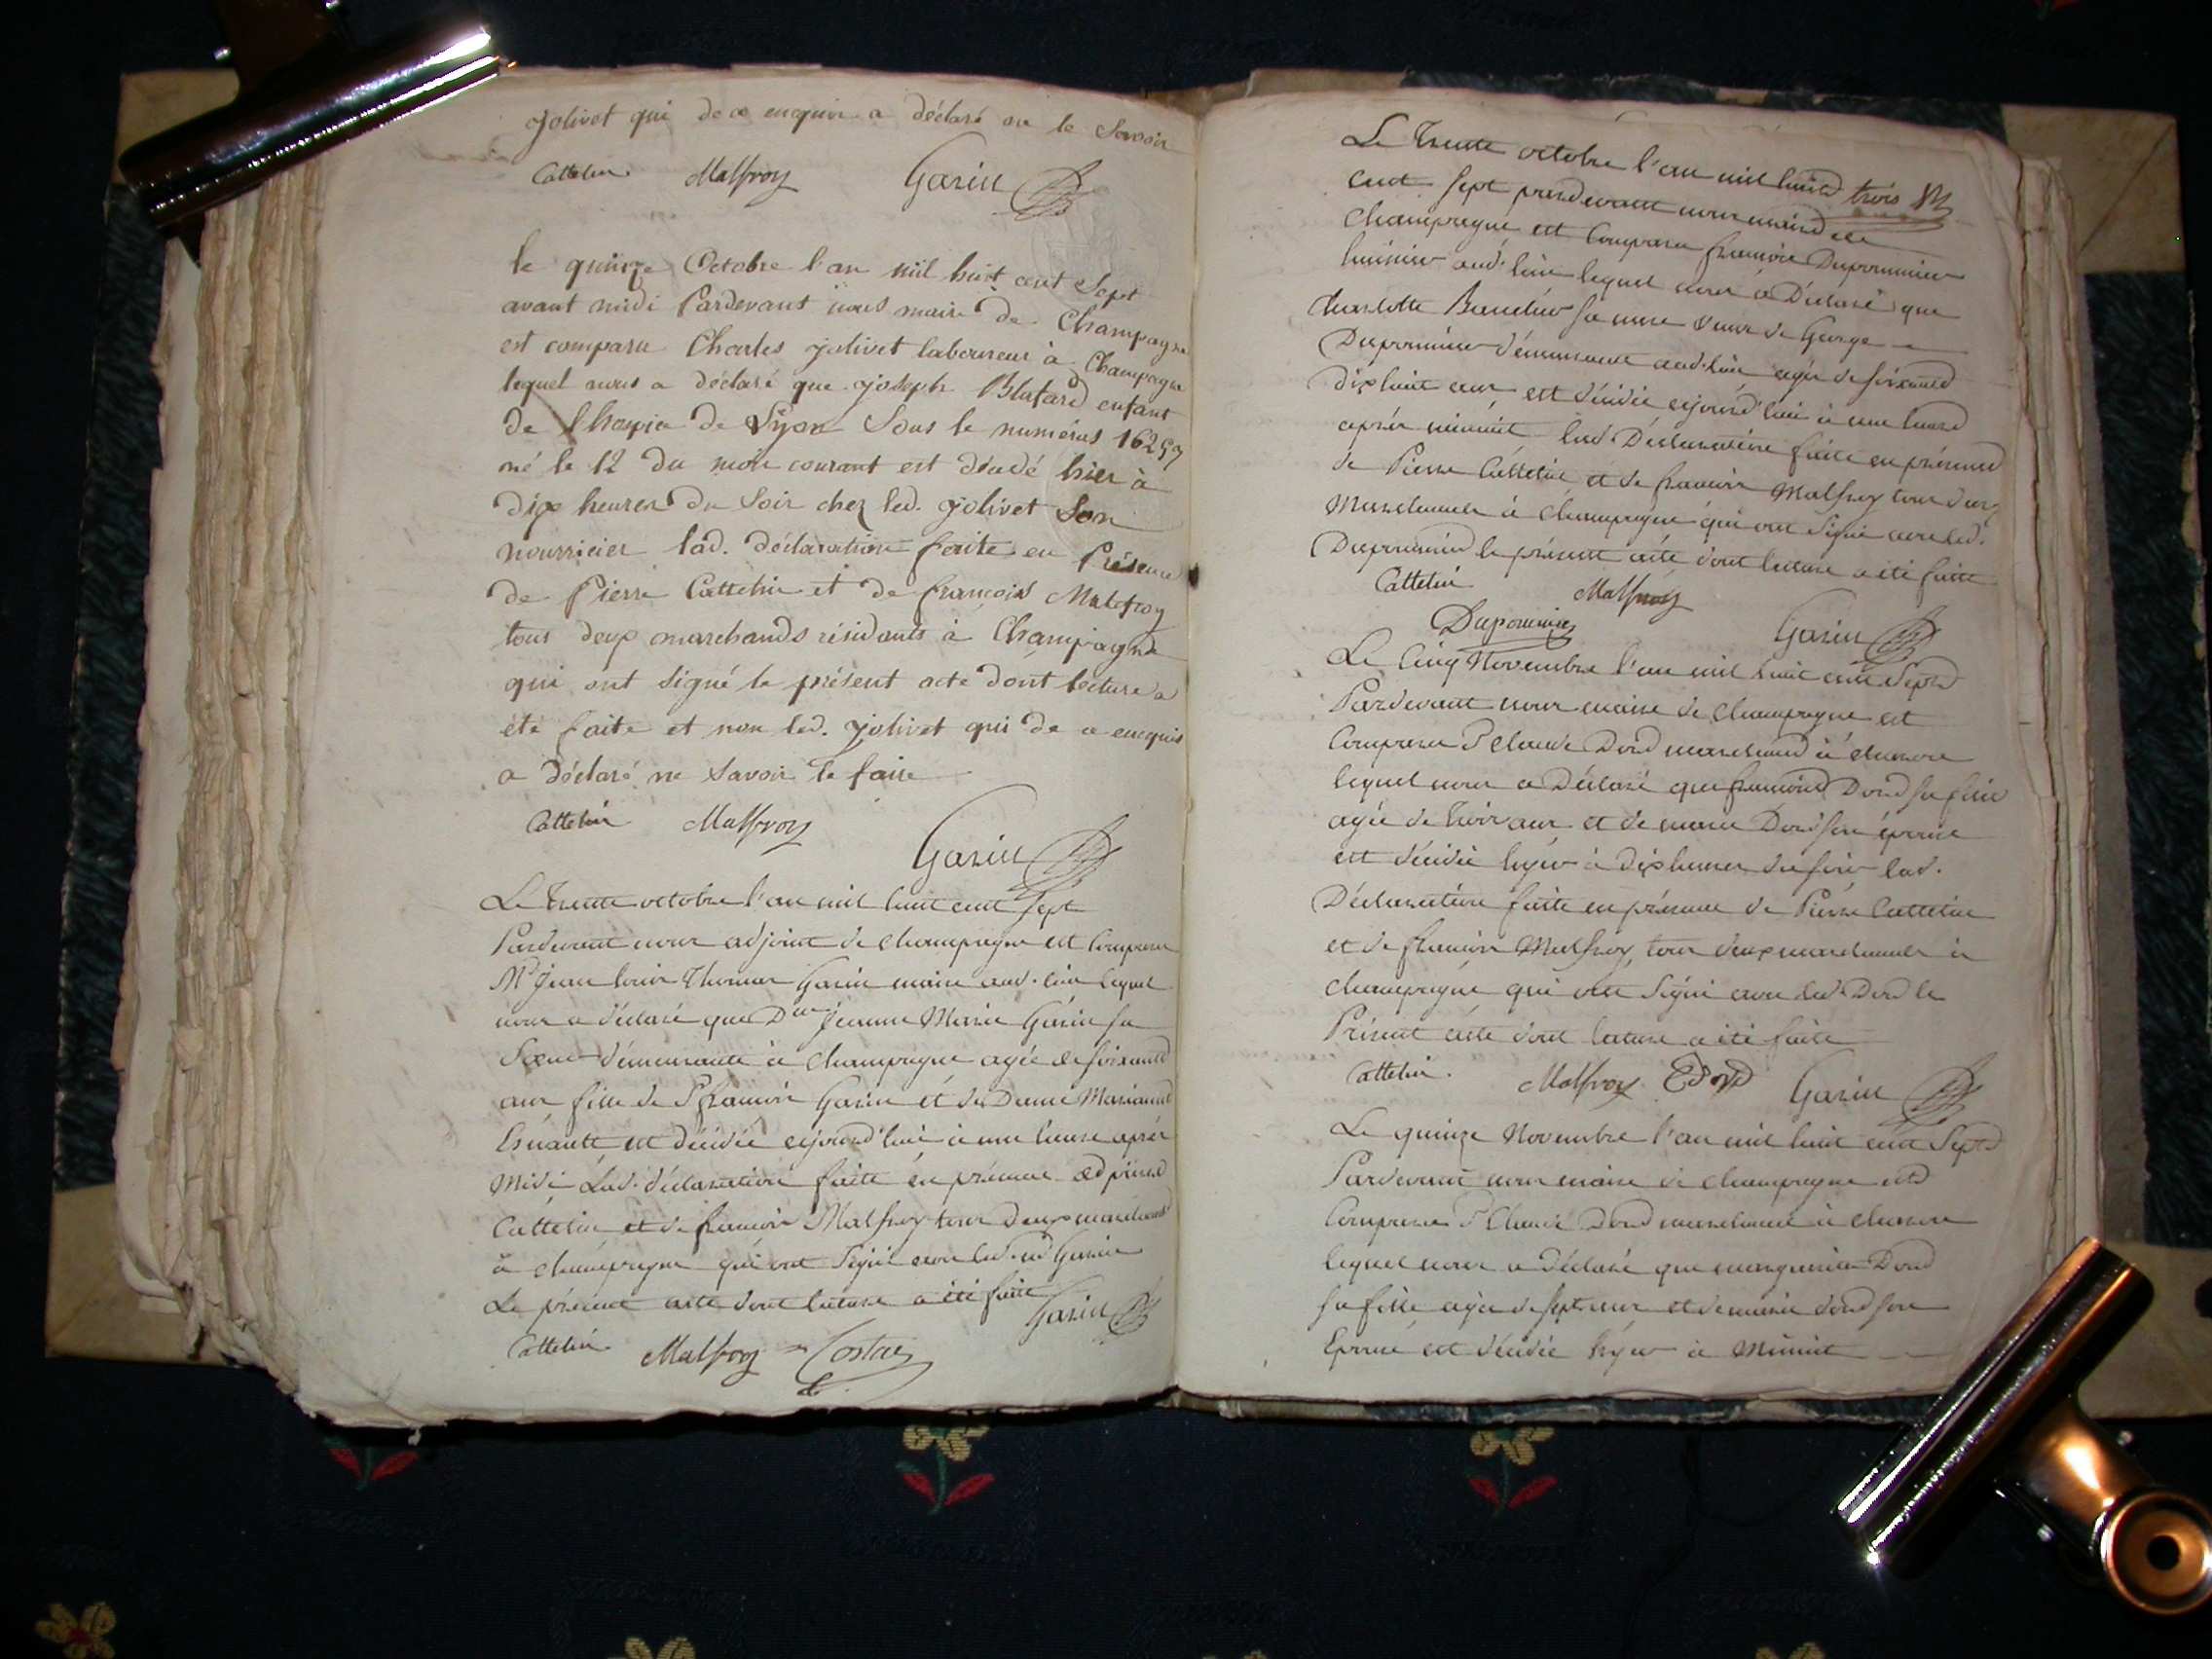 Jolivet qui de ce enquis a déclaré ne le Savoir
Cattelin Malfroy Garin
le quinze Octobre l'an mil huit cent Sept
avant midi Pardevant nous maire de Champagne
est comparu Charles Jolivet laboureur à Champagne
lequel nous a déclaré que Joseph Blafard enfant
de l'hospice de Lyon Sous le numéros 16257
né le 12 du mois courant est décédé hier à
dix heures du Soir chez led. Jolivet Son
nourricier lad. déclaration faite en Présence
de Pierre Cattelin et de françois Malefroy
tous deux marchands résidants à Champagne
qui ont signé le présent acte dont lecture a
été faite et non led. Jolivet qui de ce enquis
a déclaré ne Savoir le faire
Cattelin Malfroy
Garin
Le trente octobre l'an mil huit cent sept
Pardevant nous adjoint de champagne est Comparu
Mr Jean louis Thomas Garin maire aud. lieu lequel
nous a déclaré que Dlle Jeanne Marie Garin sa
Soeur demeurante à champagne agée de soixante
ans fille de S françois Garin et de Dame Marianne
est décédée aujourd'hui à une heure après
Midi Lad. déclaration faite en présence de pierre
Cattelin et de francois Malfroy tous deux marchands
à champagne qui ont Signé avec led. Garin
Le présent acte dont lecture a été faite Garin
Cattelin Malfroy Costaz
Le Trente octobre l'an mil huit trois
cent Sept pardevant nous maire de
Champagne est Comparu francois Duprommier
huissier aud. lieu lequel nous a Déclaré que
Charlotte Baudin sa mere veuve de George
Duprommier demeurante aud. lieu agée de soixante
dix huit ans est décédée aujourd'hui à une heure
après minuit lad. Déclaration faite en présence
de Pierre Cattelin et de francois Malfroy tous deux
Marchands à champagne qui ont Signé avec led.
Duprommier le présent acte dont lecture a été faite
Cattelin Malfroy
Duprommier Garin
Le Cinq Novembre l'an mil huit cent Sept
Pardevant nous maire de champagne est
Comparu S Claude Dord marchand à
lequel nous a Déclaré que francoise Dord sa fille
agée de trois ans et de marie Dord son épouse
est décédée hyer à dix heures du soir lad.
Déclaration faite en présence de Pierre Cattelin
et de francois Malfroy tous deux marchands à
champagne qui ont Signé avec led. Dord le
Présent acte dont lecture a été faite
Cattelin. Malfroy Dord Garin
Le quinze Novembre l'an mil huit cent Sept
Pardevant nous maire de champagne est
Comparu S Claude Dord marchand à
lequel nous a déclaré que marguerite Dord
sa fille agée de sept ans et de marie dord son
Epouse est décédée hyer à Minuit